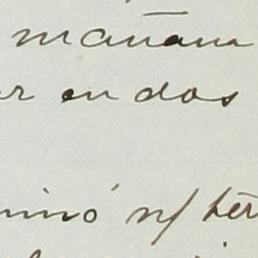 mañana
r en dos
minó n/ tér